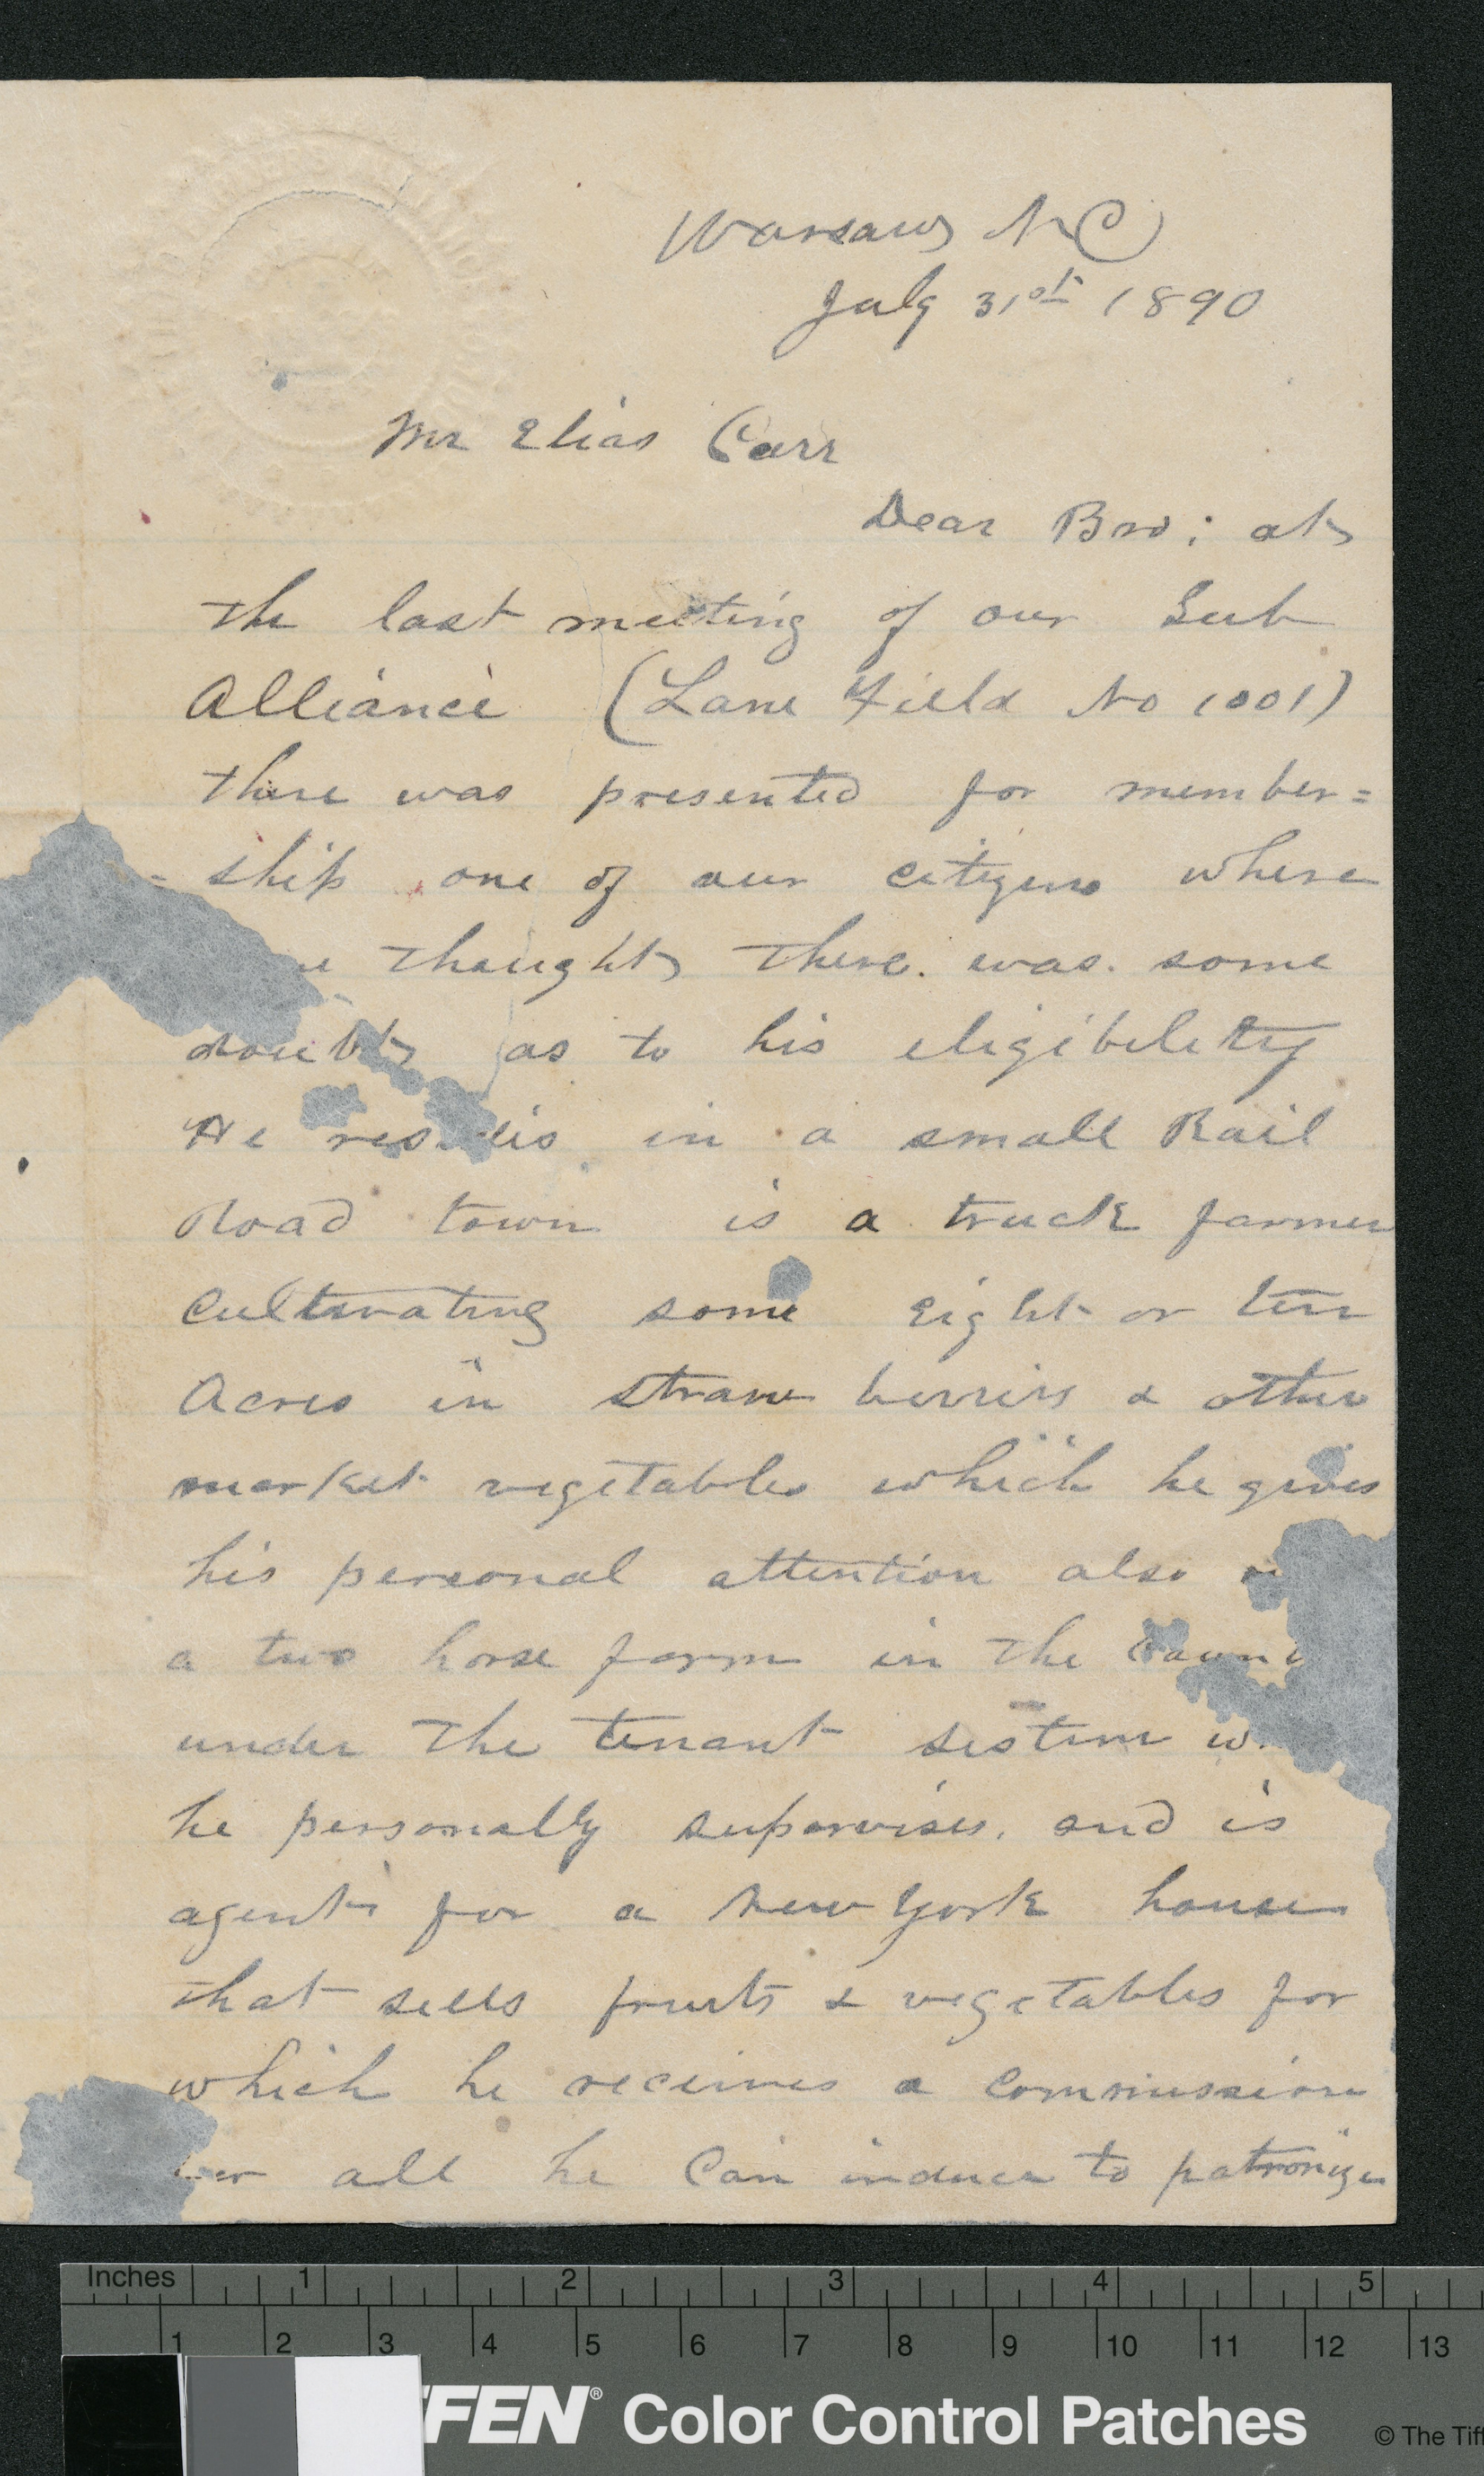 Warsaw NC
July 31st 1890
Mr Elias Carr
Dear Bro; at
the last meeting of our Sub
Alliance (Lane Field No 1001)
there was presented for member=
=ship one of our citizens where
thought there. was. some
doubt as to his eligibility
He resides in a small Rail
Road town is a truck farmer
Cultivating some Eight or ten
Acres in straw berries & other
market vegetables which he gives
his personal attention also
a two horse farm in the
under the tenant sistem
he personally supervises, and is
agent for a New York house
that sells fruits & vegetables for
which he receives a commission
all he Can induce to patronize
Inches 1 2 3 4 5
1 2 3 4 5 6 7 8 9 10 11 12 13
FFEN® Color Control Patches © The Tiff